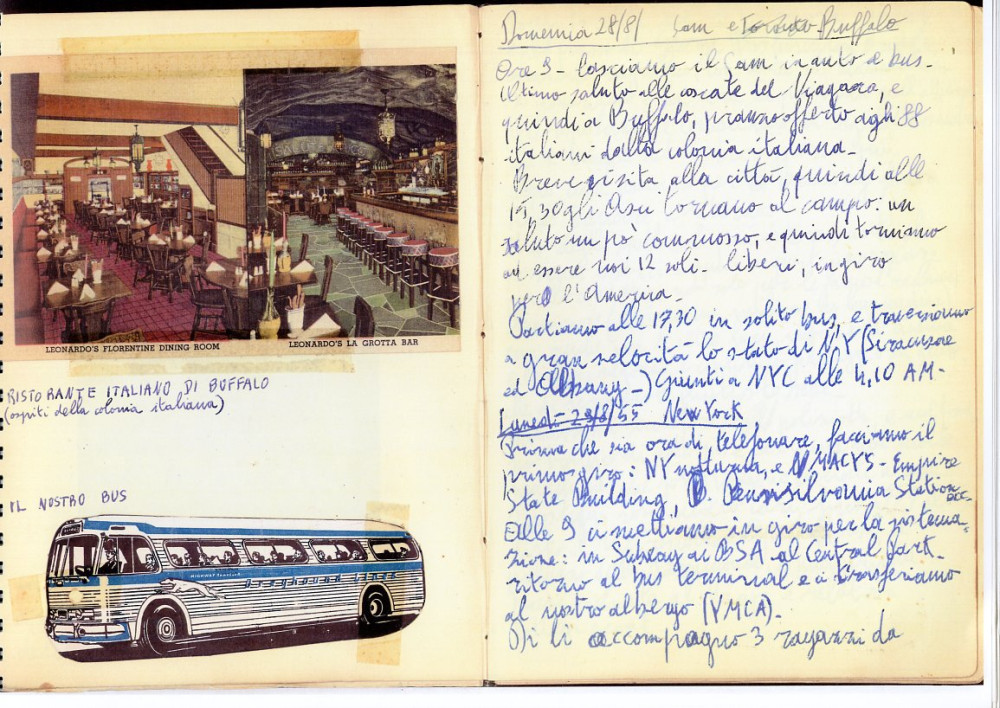 LEONARDO'S FLORENTINE DINING ROOM
LEONARDO'S LA GROTTA BAR
RISTORANTE ITALIANO DI BUFFALO
(ospiti della colonia italiana)
IL NOSTRO BUS
Domenica 28/8/ Buffalo
Ore 9 - lasciamo il Jam in auto e bus.
Ultimo saluto alle cascate del Niagara, e
quindi a Buffalo, pranzo offerto agli 88
italiani dalla colonia italiana -
Breve visita alla città, quindi alle
15,30 gli Asci tornano al campo: un
saluto un pò commosso, e quindi torniamo
ad essere noi 12 soli - liberi, in giro
per l'America -
Partiamo alle 17,30 in solito bus, e traversiamo
a gran velocità lo stato di NY (Siracuse
ed Albany -) Giunti a NYC alle 4,10 AM -
Lunedì 29/8/55 New York
Prima che sia ora di telefonare, facciamo il
primo giro: NY notturna, e MACYS - Empire
State Building, Pennsilvania Station
ecc.
Alle 9 ci mettiamo in giro per la sistema-
zione: in Subway ai BSA - al Central Park -
ritorno al bus terminal e ci trasferiamo
al nostro albergo (YMCA).
Di lì accompagno 3 ragazzi da